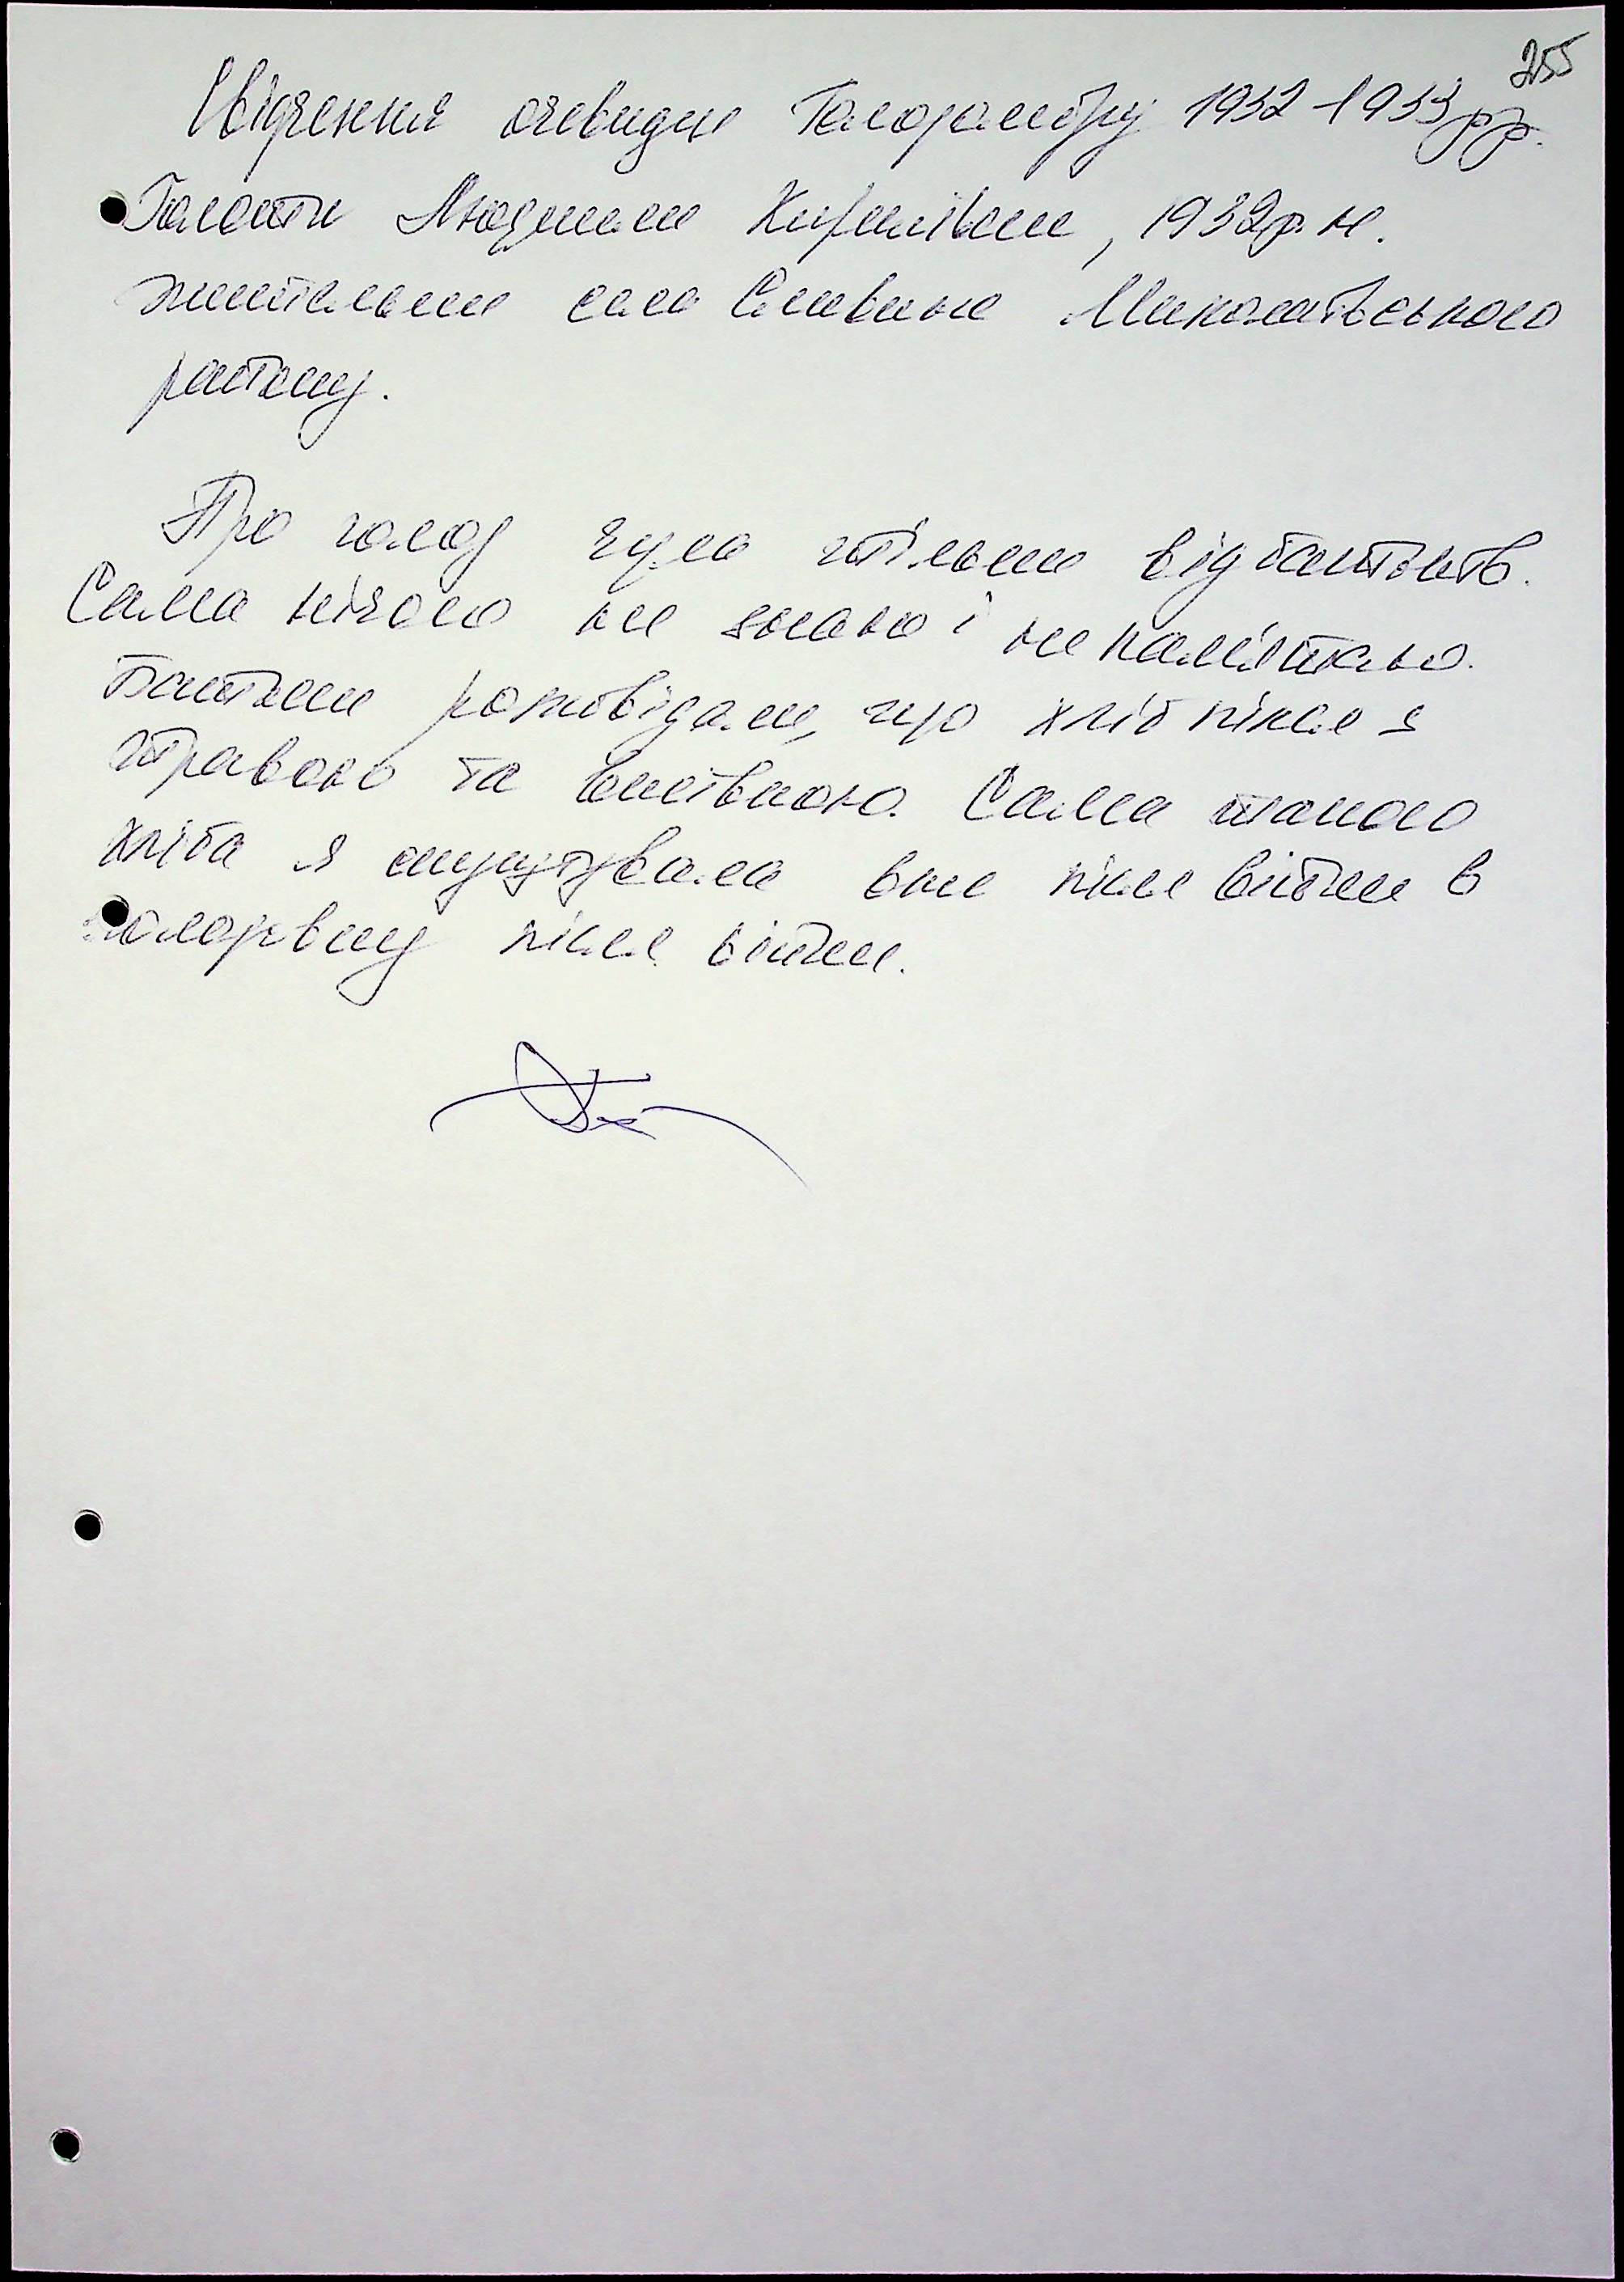 255
Свідчення очевидця Голодомору 1932-1933 рр.
Людмили Кирилівни, 1932 р. н.
жительки села Сливино Миколаївського
району.
Про голод чула тільки від батьків.
Сама нічого не знаю і не пам'ятаю.
Батьки розповідали, що хліб пікся з
травою та
хліба я скуштувала вже після війни в
голодовку після війни.
Сама такого